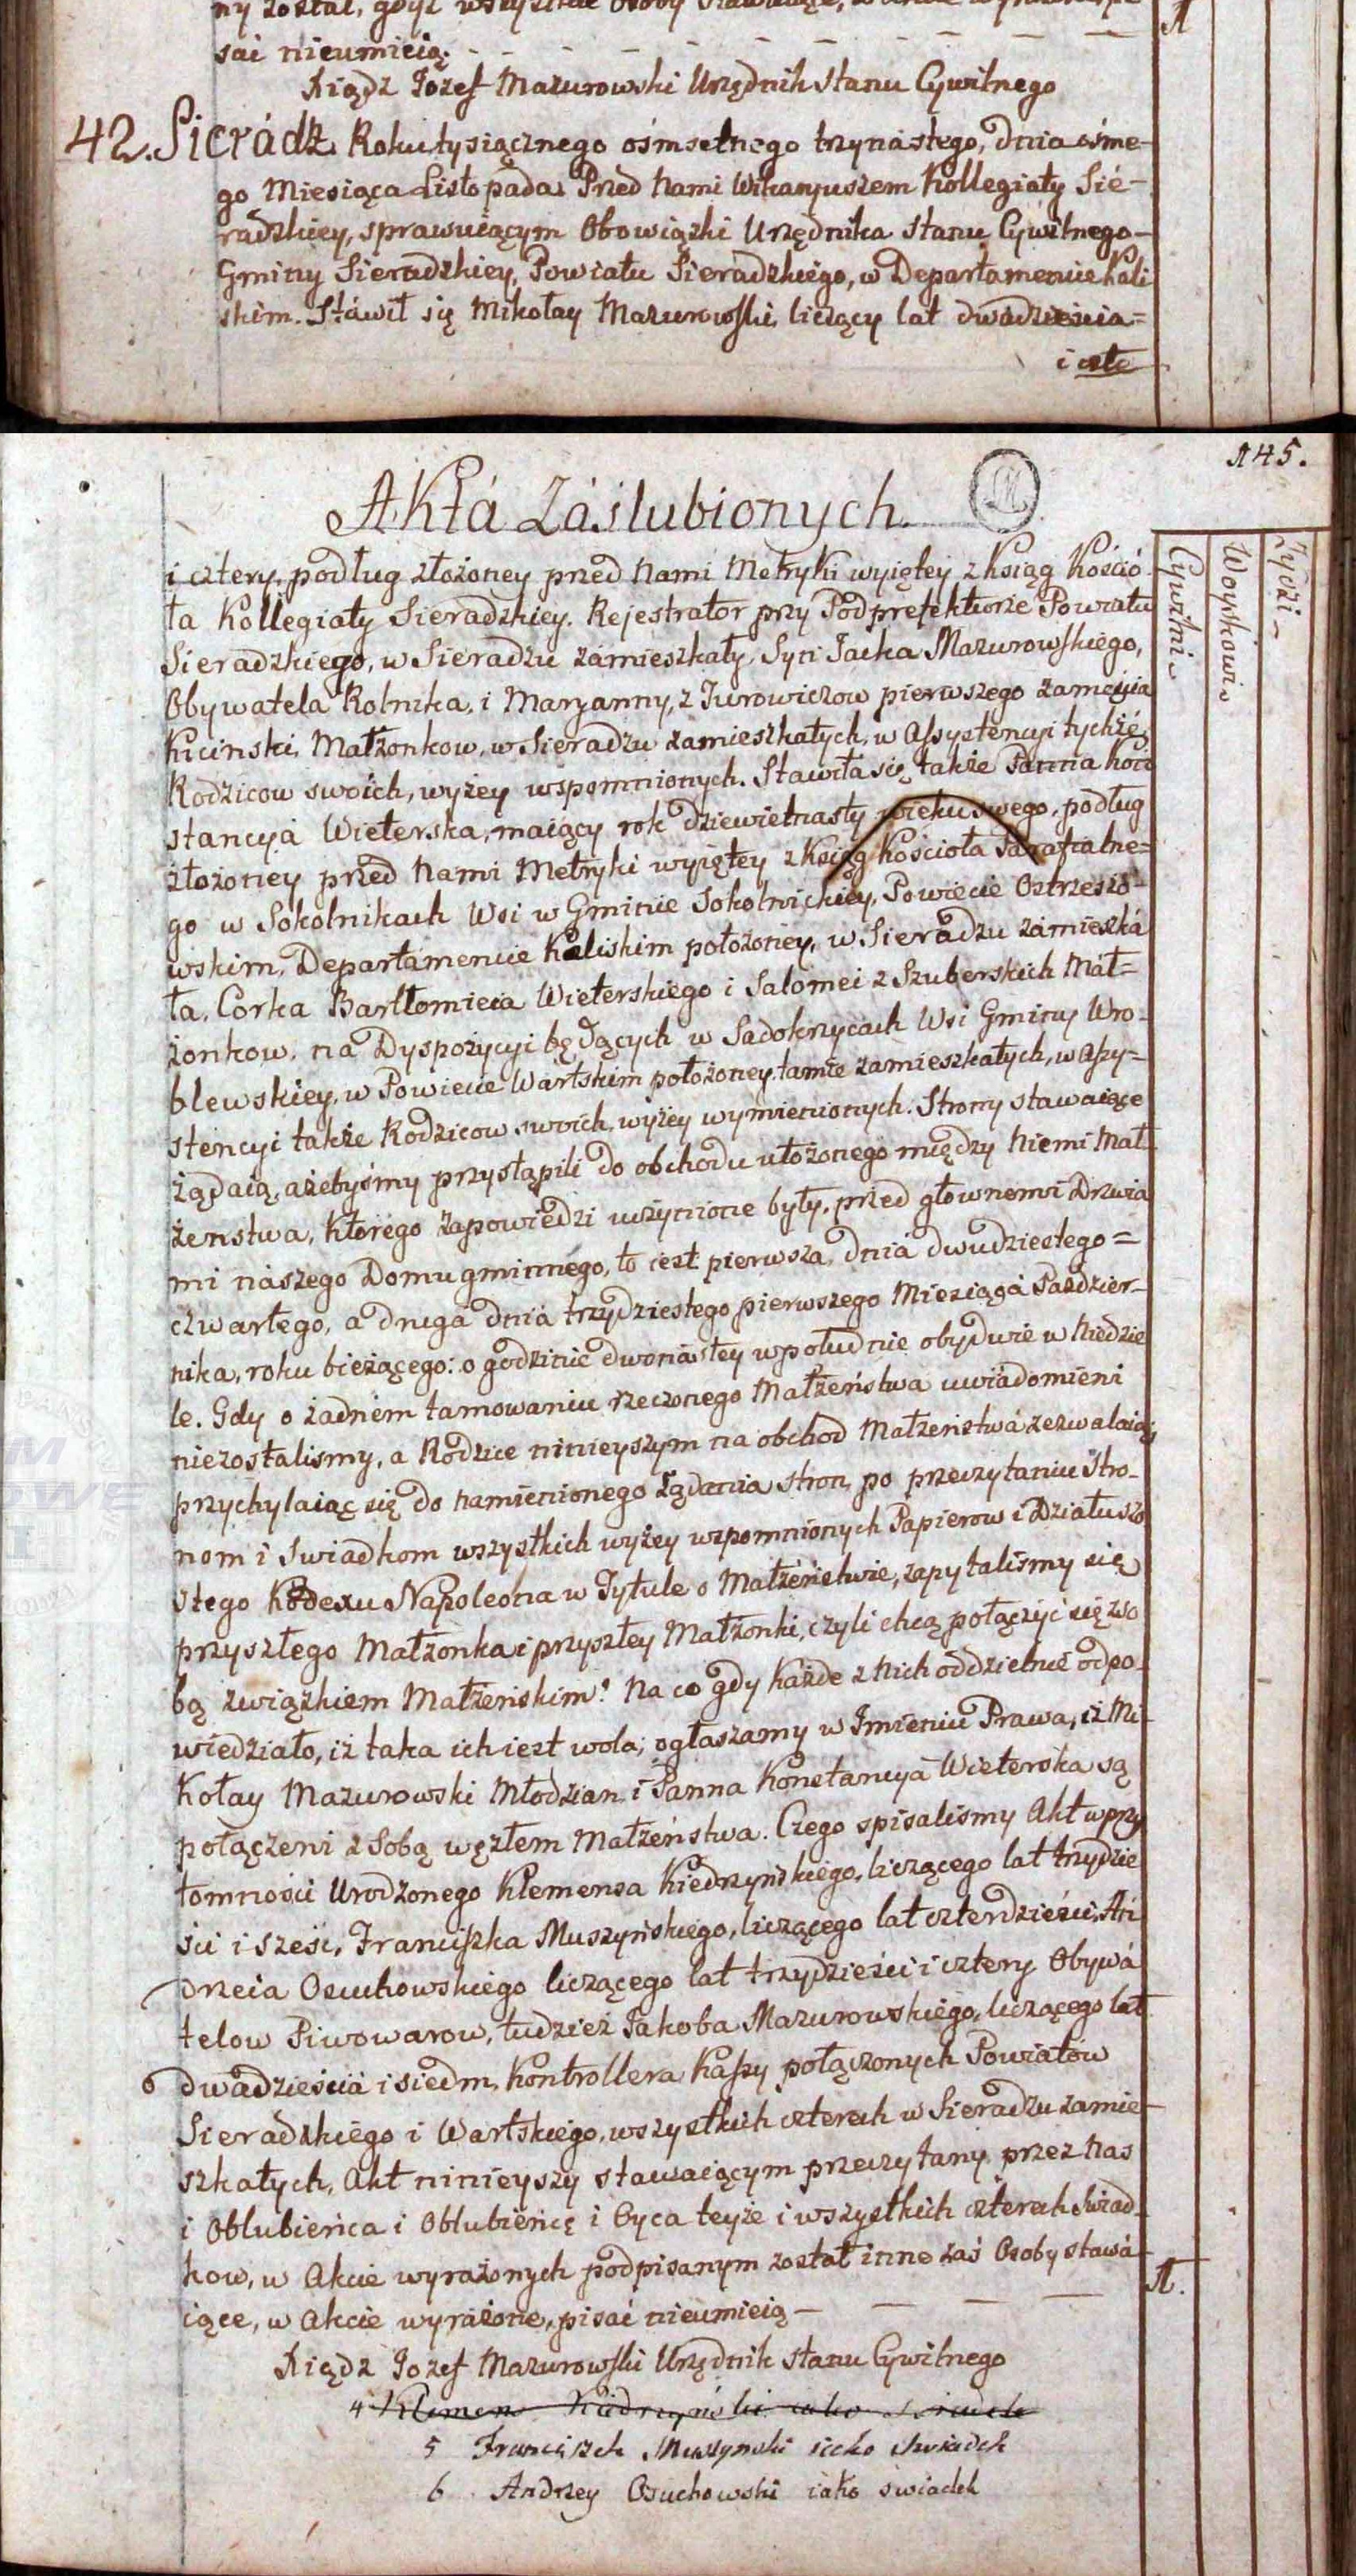 sać nieumieią.
Xiądz Jozef Mazurowski Urzędnik Stanu Cywilnego
42. Sieradz. Roku tysiącznego ośmsetnego trzynastego, dnia osme-
go Miesiąca Listopada. Przed Nami Wikaryuszem Kollegiaty Sie-
radzkiey, sprawuiącym Obowiązki Urzędnika Stanu Cywilnego
Gminy Sieradzkiey, Powiatu Sieradzkiego, w Departamencie Kali
skim. Stawił się Mikołay Mazurowski, liczący lat dwadzieścia=
i czte
145.
Akta Záślubionych.
Cywilni
Woyskowi
Zydzi
i cztery, podług złożoney przed Nami Metryki wyiętey z Ksiąg Kościo
ła Kollegiaty Sieradzkiey. Rejestrator przy Podprefekturze Powiatu
Sieradzkiego, w Sieradzu zamieszkały, Syn Jacka Mazurowskiego,
Obywatela Rolnika, i Maryanny, z Jurowiczow pierwszego zamęjia
Kicinski, Małżonkow, w Sieradzu zamieszkałych, w Assystencyi tychże
Rodzicow swoich, wyżey wspomnionych. Stawiła się także Panna Kon
stancya Wieterska, maiący rok dziewietnasty wieku swego, podług
złożoney przed Nami Metryki wyiętey z Ksiąg Kościoła Parafialne=
go w Sokolnikach Wsi w Gminie Sokolnickiey, Powiecie Ostrzeszo-
wskim, Departamencie Kaliskim położoney, w Sieradzu zamieszka
ła, Corka Bartłomieia Wieterskiego i Salomei z Szuberskich Mał=
żonkow, na Dyspozycyi będących w Sadokrzycach Wsi Gminy Wro-
blewskiey, w Powiecie Wartskim położoney, tamże zamieszkałych, w Assy=
stencyi także Rodzicow swoich, wyżey wymienionych. Strony stawaiące
żądaią, ażebyśmy przystąpili do obchodu ułożonego między Niemi Mał-
żenstwa, ktorego zapowiedzi uczynione były, przed głownemi Drzwia
mi naszego Domu gminnego, to iest pierwsza, dnia dwudziestego=
czwartego, a druga dnia trzydziestego pierwszego Miesiąca Pazdzier-
nika, roku bieżącego: o godzinie dwonastey w południe obydwie w Niedzie
le. Gdy o żadnem tamowaniu rzeczonego Małżeństwa uwiadomieni
niezostalismy, a Rodzice ninieyszym na obchod Małżeństwa zezwalaią,
przychylaiąc się do namienionego żądania stron, po przeczytaniu Stro-
nom i Swiadkom wszystkich wyżey wspomnionych Papierow i Działu szo
stego Kodexu Napoleona w Tytule o Małżeństwie, zapytalismy się
przyszłego Małżonka i przyszłey Małżonki, czyli chcą połączyć się z so
bą związkiem Małżeńskim? Na co gdy każde z Nich oddzielnie odpo-
wiedziało, iż taka ich iest wola; ogłaszamy w Imieniu Prawa, iż Mi-
kołay Mazurowski Młodzian i Panna Konstancya Wieterska są
połączeni z Sobą węzłem Małżeństwa. Czego spisalismy Akt w przy
tomności Urodzonego Klemensa Kiedrzyńskiego, liczącego lat trzydzie
ści i sześć, Franciszka Muszyńskiego, liczącego lat czterdzieści, An
drzeia Osuchowskiego liczącego lat trzydzieści i cztery Obywa
telow Piwowarow, tudzież Jakoba Mazurowskiego, liczącego lat
dwadzieścia i siedm, Kontrollera Kassy połączonych Powiatow
Sieradzkiego i Wartskiego, wszystkich czterech w Sieradzu zamie-
szkałych, Akt ninieyszy stawaiącym przeczytany, przez Nas
i Oblubieńca i Oblubienicę i Oyca teyże i wszystkich czterech Swiad-
kow, w Akcie wyrażonych podpisanym został inne zaś Osoby stawa-
iące, w Akcie wyrażone, pisać nieumieią —
Xiądz Jozef Mazurowski Urzędnik Stanu Cywilnego
4 Klemens Kiedrzyński iako swiadek
5 Franciszek Muszynski iako swiadek
6 Andrzey Osuchowski iako swiadek